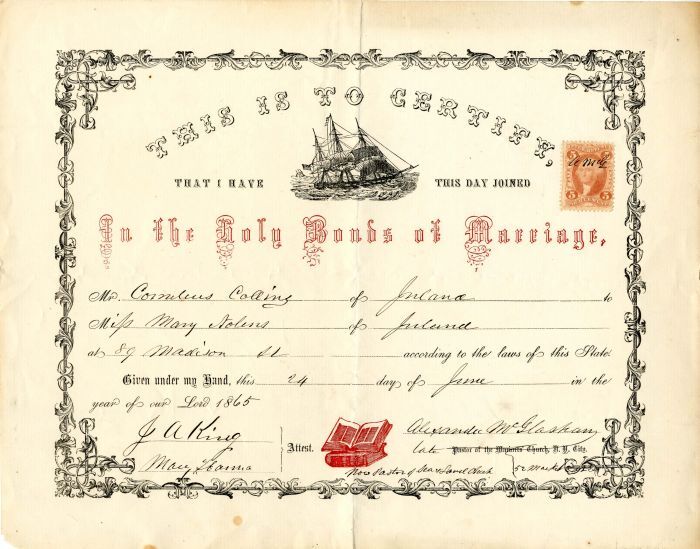 THIS IS TO CERTIFY,
THAT I HAVE THIS DAY JOINED
5 5
In the Holy Bonds of Marriage,
Mr. Cornelius Collins of Ireland to
Miss Mary of Ireland
at 89 Madison St according to the laws of this State
Given under my Hand, this 24 day of June in the
year of our Lord 1865
J A King
Mary
Attest.
Alexander McGlashan
late Pastor of the Mariners Church, N. Y. City.
Now Pastor of Sea & Land Church 52 Market